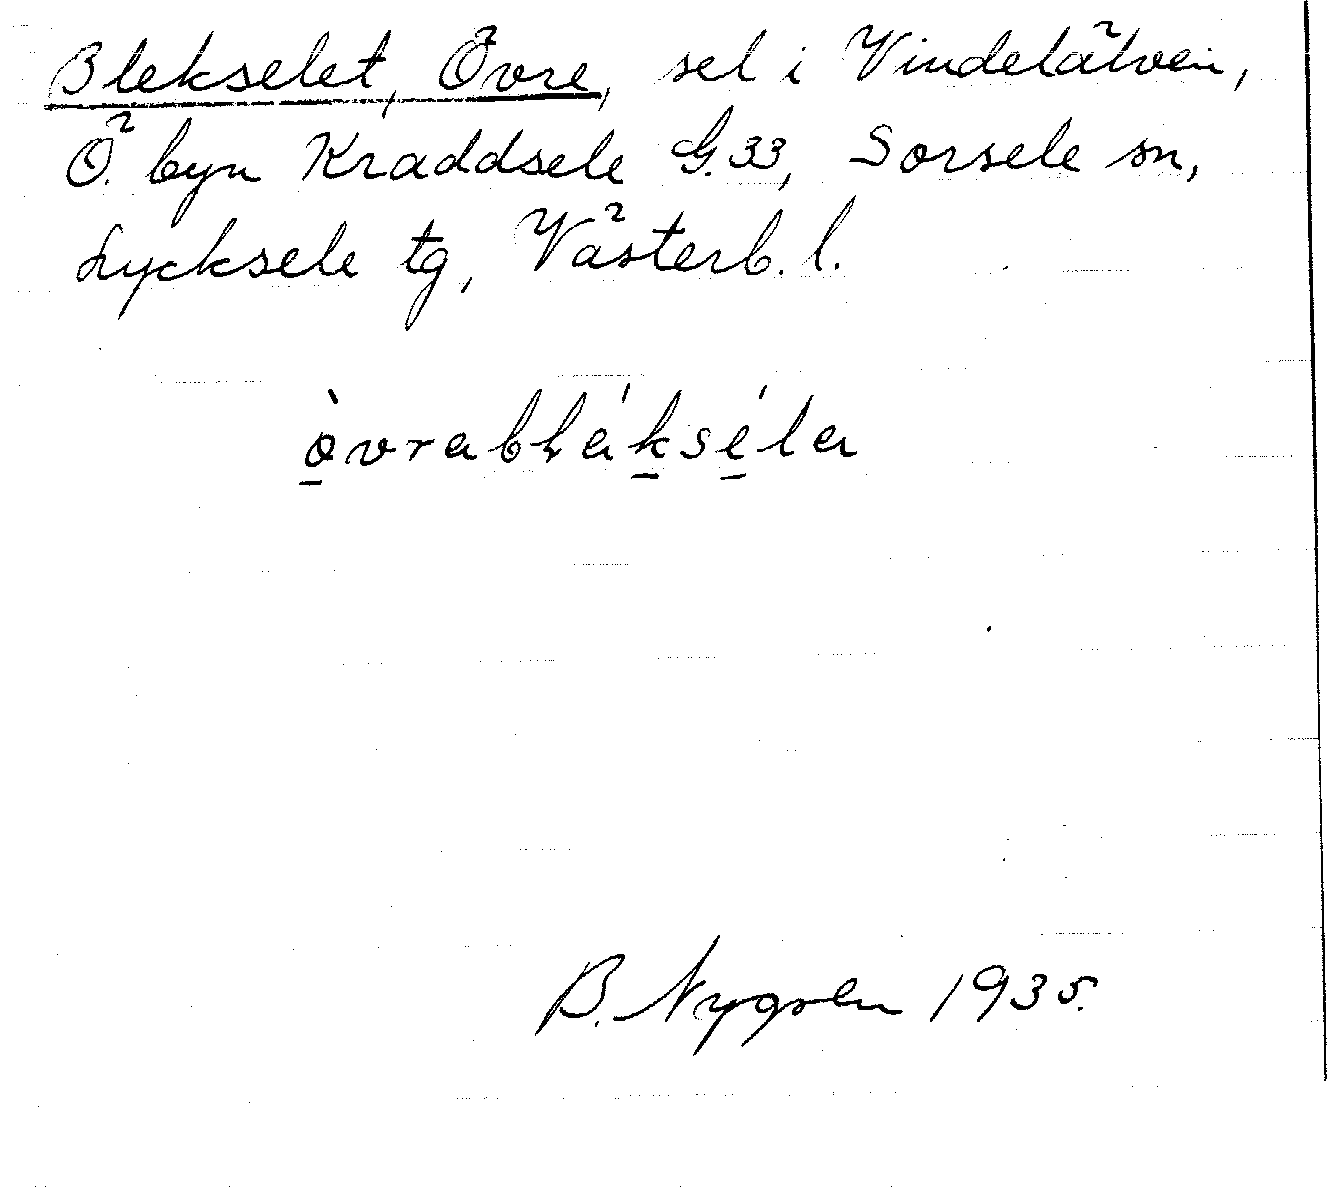 Blekselet, Övre, sel i Vindelälven,
Ö. byn Kraddsele G.33, Sorsele sn,
Lycksele tg, Västerb. l.
B. Nygren 1935.